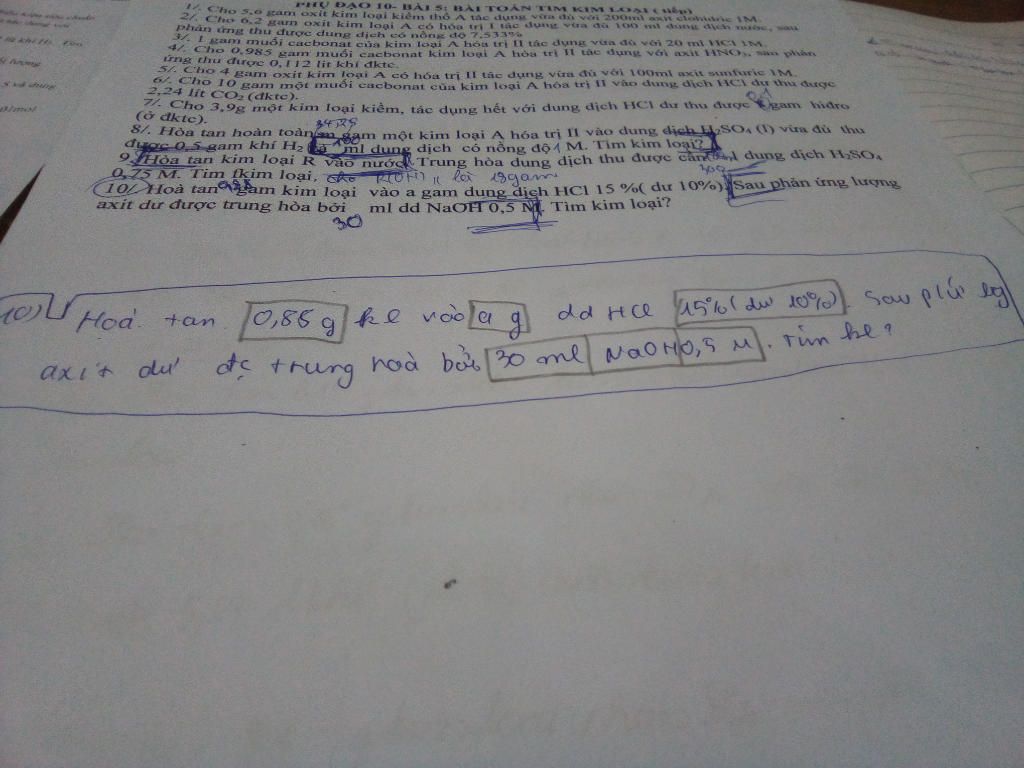 PHỤ ĐẠO 10- BÀI 5: BÀI TOÁN TÌM KIM LOẠI ( tiếp)
1/. Cho 5,6 gam oxit kim loại kiềm thổ A tác dụng vừa đủ với 200ml axit clohidric 1M.
2/. Cho 6,2 gam oxit kim loại A có hóa trị I tác dụng vừa đủ 100 ml dung dịch nước, sau
phản ứng thu được dung dịch có nồng độ 7,533%
3/. 1 gam muối cacbonat của kim loại A hóa trị II tác dụng vừa đủ với 20 ml HCl 1M.
4/. Cho 0,985 gam muối cacbonat kim loại A hóa trị II tác dụng với axit HNO3, sau phản
ứng thu được 0,112 lít khí đktc.
5/. Cho 4 gam oxit kim loại A có hóa trị II tác dụng vừa đủ với 100ml axit sunfuric 1M.
6/. Cho 10 gam một muối cacbonat của kim loại A hóa trị II vào dung dịch HCl dư thu được
2,24 lít CO2 (đktc).
7/. Cho 3,9g một kim loại kiềm, tác dụng hết với dung dịch HCl dư thu được gam hiđro
(ở đktc).
34,25
8/. Hòa tan hoàn toàn m gam một kim loại A hóa trị II vào dung dịch H2SO4 (l) vừa đủ thu
được 0,5 gam khí H2 ml dung dịch có nồng độ 1 M. Tìm kim loại?
9/. Hòa tan kim loại R vào nước. Trung hòa dung dịch thu được cần ml dung dịch H2SO4
300
0,75 M. Tìm kim loại,
10/ Hoà tan gam kim loại vào a gam dung dịch HCl 15 %( dư 10%). Sau phản ứng lượng
axit dư được trung hòa bởi ml dd NaOH 0,5 M. Tìm kim loại?
30
10) Hoà tan 0,88 g kl vào a g dd HCl 15% (dư 10%). Sau pứ lg
axit dư đc trung hoà bởi 30 ml NaOH 0,5 M. Tìm kl?